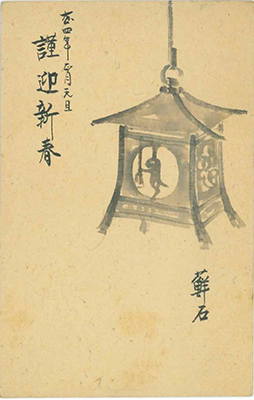 大正四年正月元旦
謹迎新春
蘚石